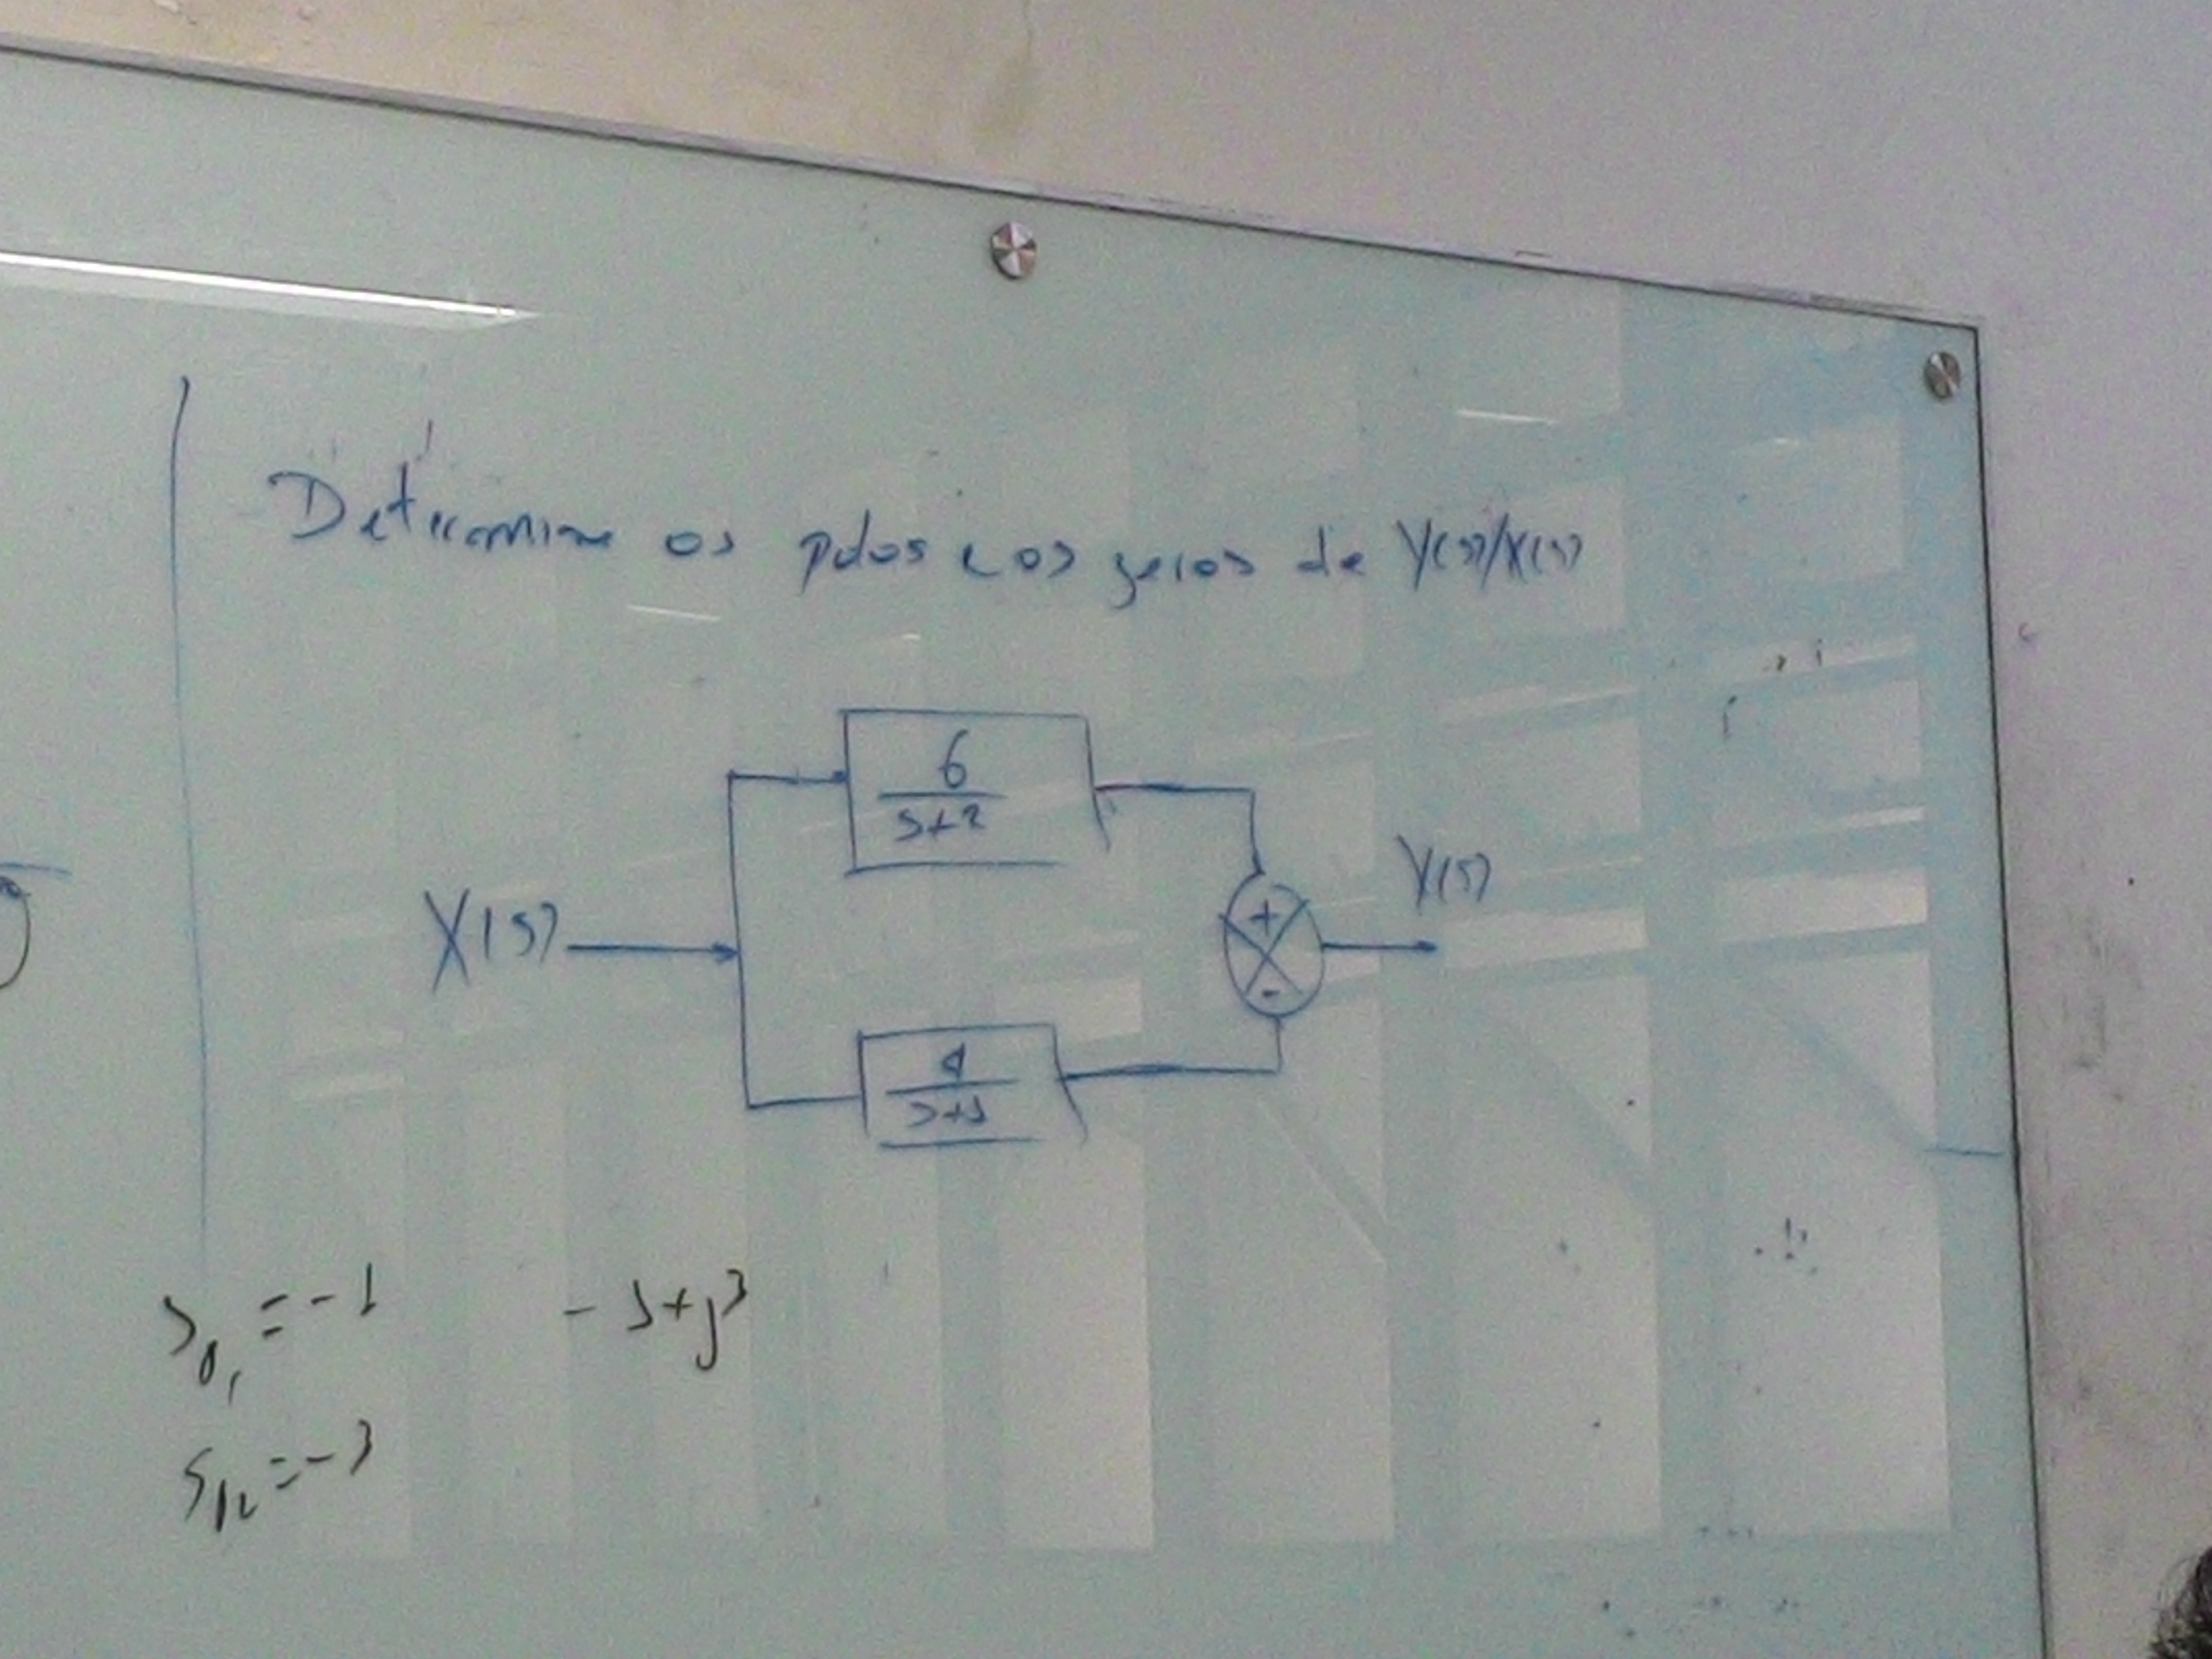 Determine os polos e os zeros de Y(s)/X(s)
6
s+2
X(s)
+
-
Y(s)
4
s+1
= -1
- 1+j3
= -3